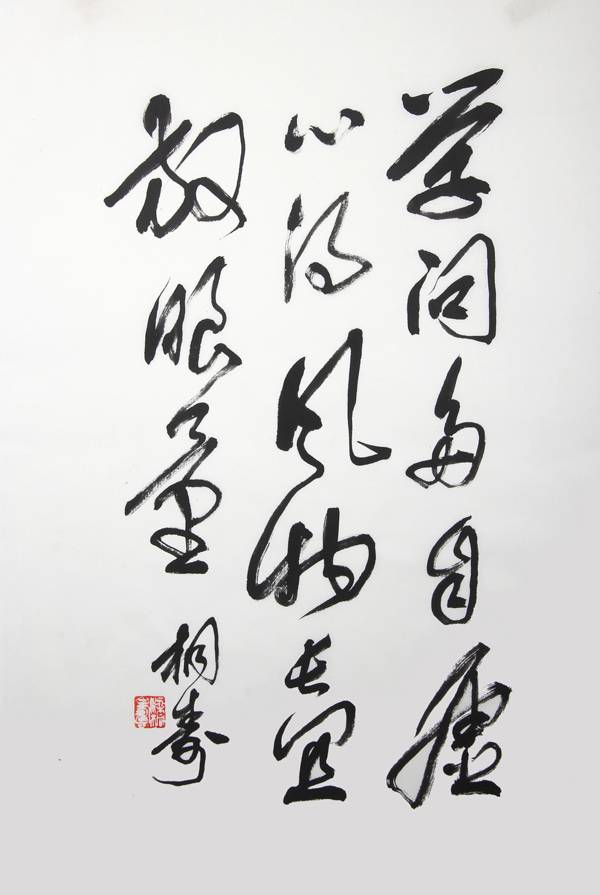 学问每自虚
心得风物长宜
放眼量
桐寿